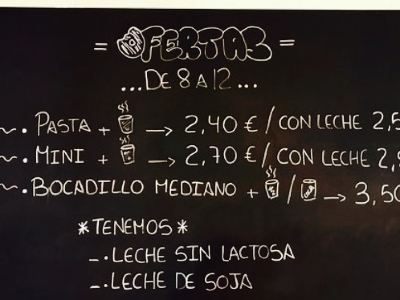 = OFERTAS =
...DE 8 A 12...
~. PASTA + → 2,40 € / CON LECHE 2,5
~. MINI + → 2,70 € / CON LECHE 2,
~. BOCADILLO MEDIANO + / → 3,50
*TENEMOS*
-. LECHE SIN LACTOSA
-. LECHE DE SOJA